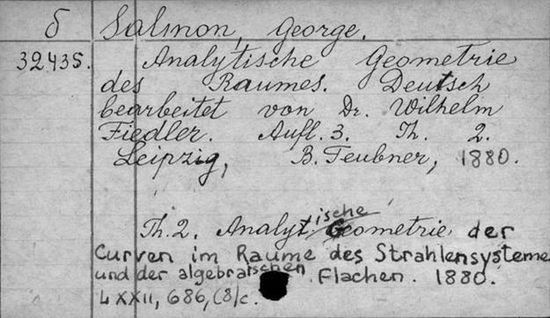 δ Salmon, George.
32435. Analytische Geometrie
des Raumes. Deutsch
bearbeitet von Dr. Wilhelm
Fiedler. Aufl. 3. Th. 2.
Leipzig, B. Teubner, 1880.
Th. 2. Analytische Geometrie der
Curven im Raume des Strahlensysteme
und der algebraischen Flachen. 1880.
LXXII, 686, (8) c.